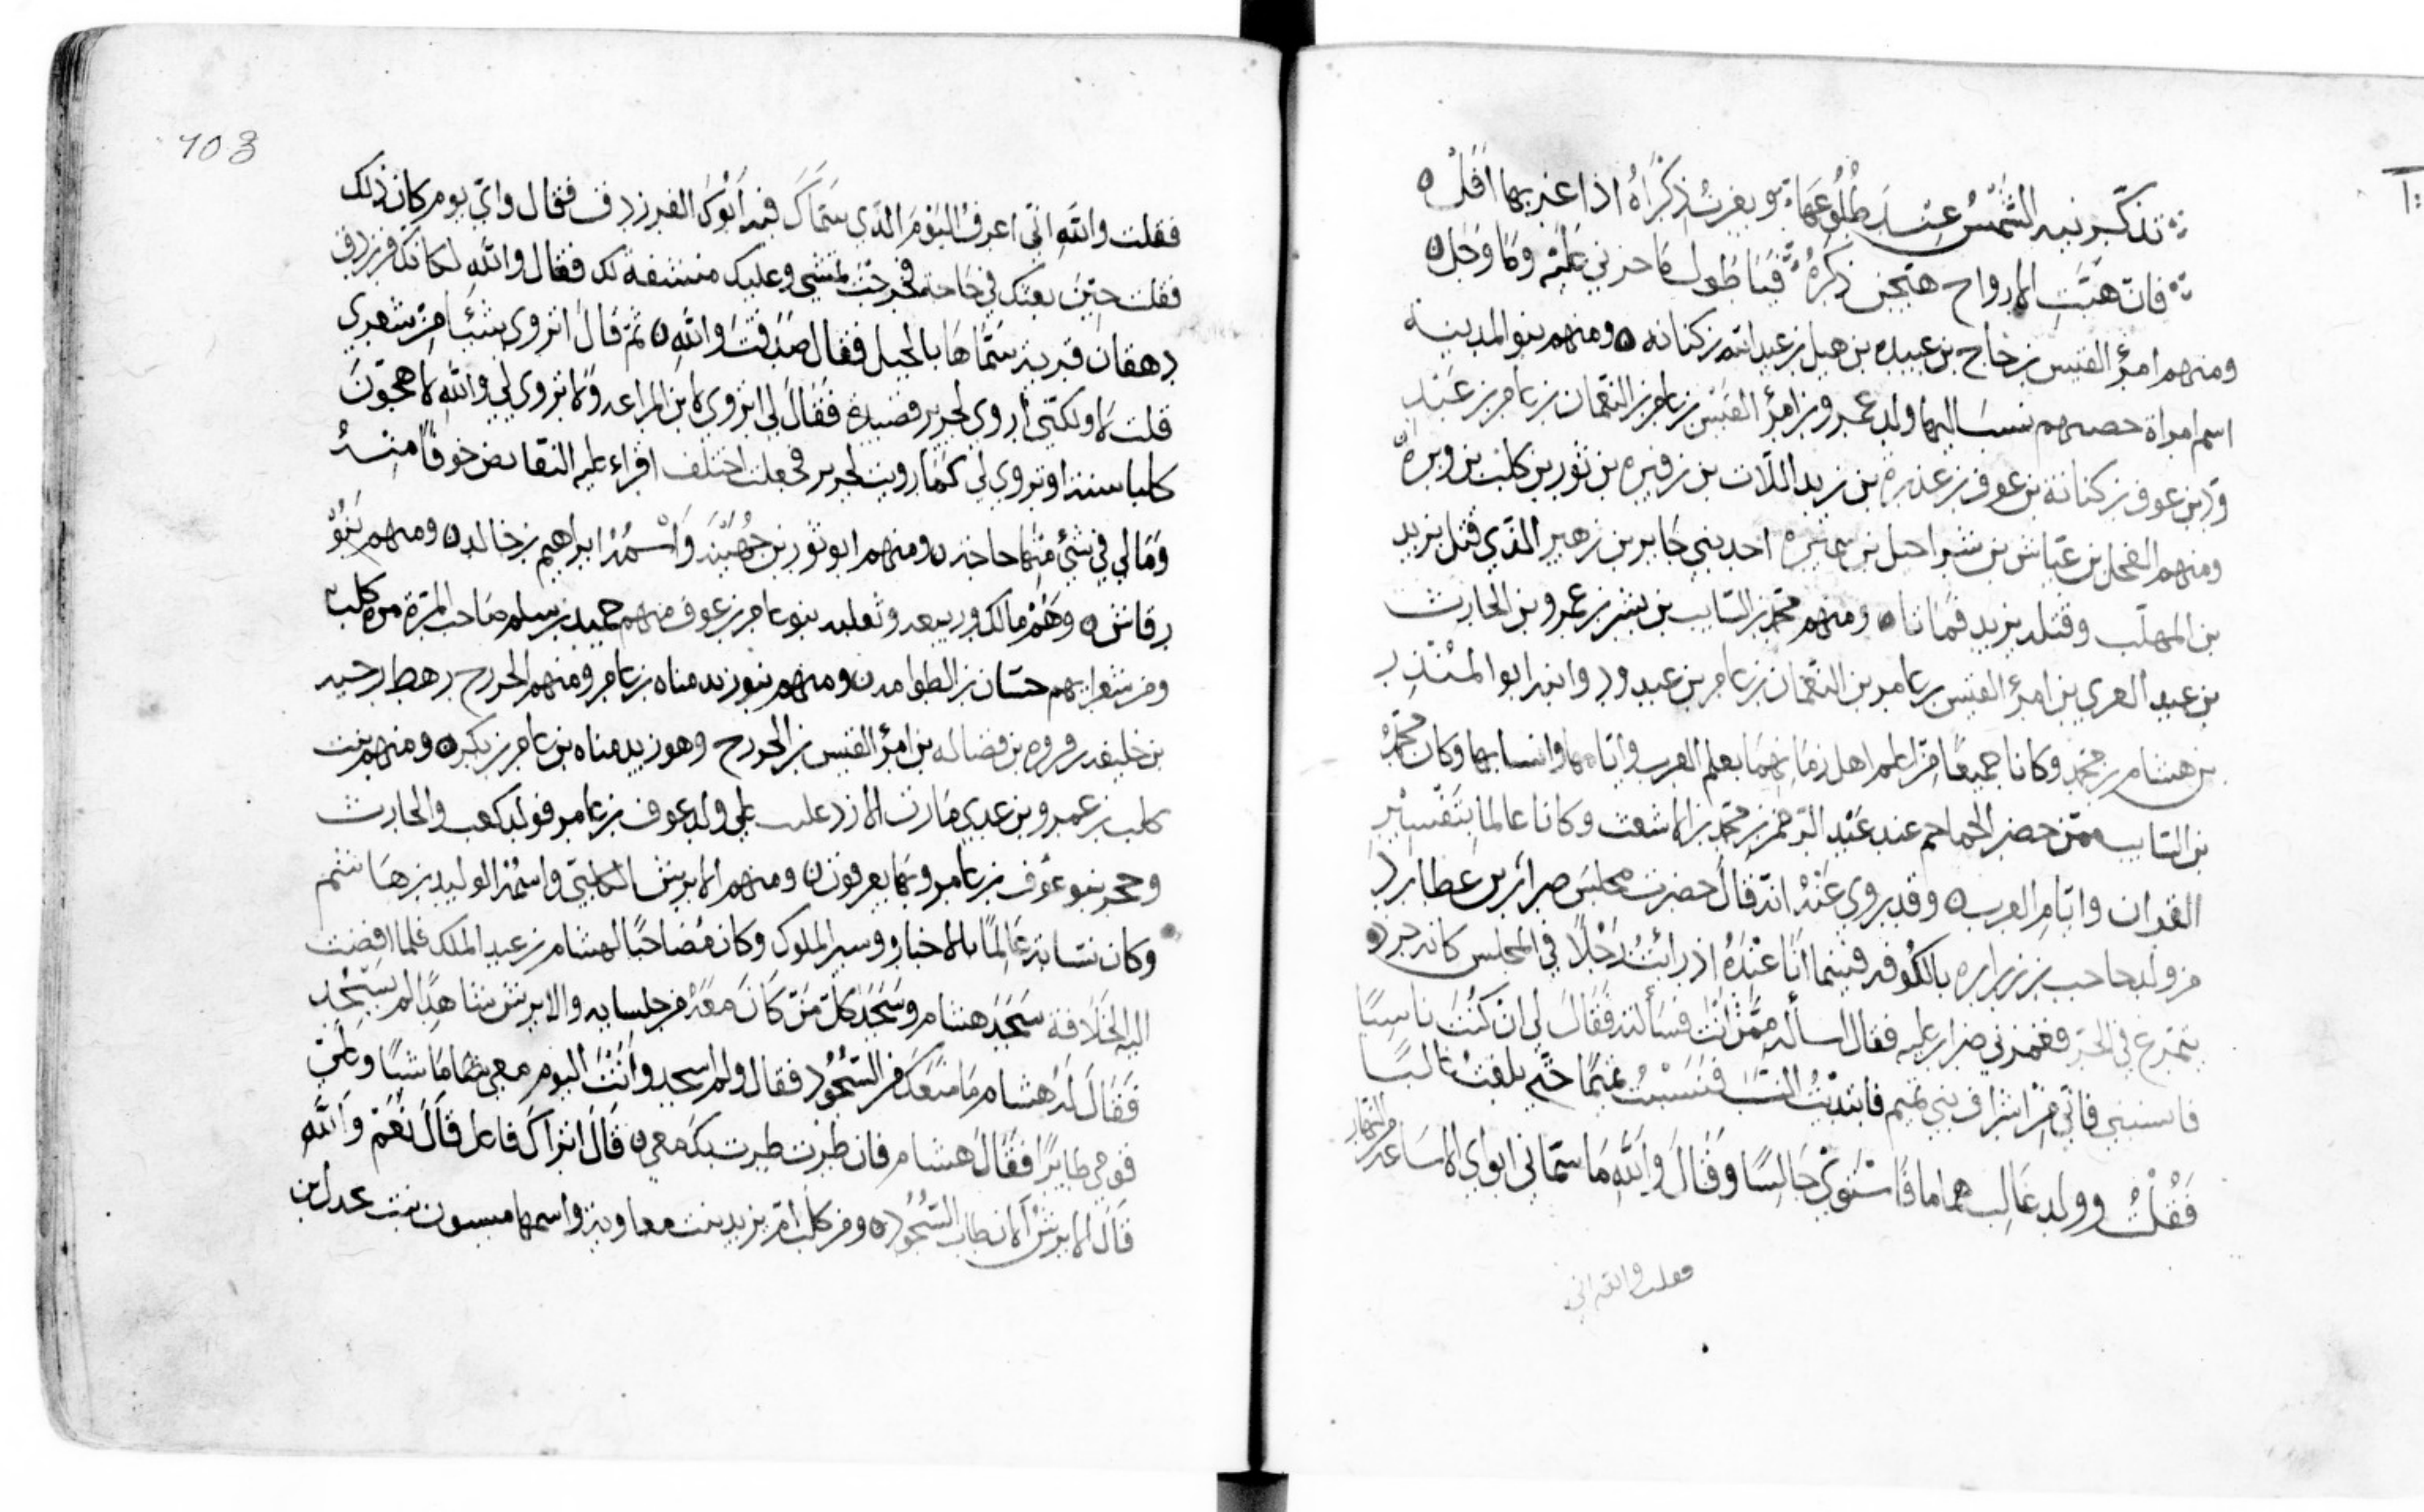 تذكرنيه الشمس عند طلوعها ويعرض ذكراه اذا غربها افل
فان هبت الارواح هيجن ذكره فيا طول ما حزني عليه وما وجل
ومنهم امرؤ القيس بن حمام بن عبيده بن هبل بن عبد الله بن كنانه ومنهم بنو المدينه
اسم امراة حصنهم نسب اليها ولد عمرو بن امرؤ القيس بن عامر بن النعمان بن عامر بن عبد
ود بن عوف بن كنانة بن عوف بن عذرة بن زيد اللات بن رفيده بن ثور بن كلب بن وبرة
ومنهم الفحل بن عياش بن شراحيل بن سميره احد بني جابر بن زهير الذي قتل يزيد
بن المهلب وقتله يزيد فماتا ومنهم محمد بن السايب بن بشر بن عمرو بن الحارث
بن عبد العزى بن امرؤ القيس بن عامر بن النعمان بن عامر بن عبد ود وابنه ابو المنذر
بن هشام بن محمد وكانا جميعا من اعلم اهل زمانهما بعلم العرب وايامها وانسابها وكان محمد
بن السايب ممن حضر الجماجم عند عبد الرحمن بن محمد بن الاشعث وكانا عالما بتفسير
القران وايام العرب وقد يروي عنه انه قال حضرت مجلس ضرار بن عطارد
من ولد حاجب بن زراره بالكوفه فبينما انا عنده اذ رائت رجلا في المجلس كانه جرذ
يتمرغ في الخز فغمزني ضرار عليه فقال اساله ممن انت فسألته فقال لي ان كنت ناسبا
فانسبني فاني من اشراف بني تميم فابتدئت النسب فنسبت تميما حتى بلغت غالبا
فقلت وولد غالب هماما فاستوى جالسا وقال والله ما سماني ابواي الا ساعه من النهار
فقلت والله اني
103
فقلت والله اني اعرف اليوم الذي سماك فيه ابوك الفرزدق فقال واي يوم كان ذلك
فقلت حين بعثك في حاجة فخرجت تمشي وعليك مستقة لك فقال والله لكانك فرزدق
دهقان قرية سماها بالجبل فقال صدقت والله ثم قال اتروي شيئا من شعري
قلت لا ولكني اروي لجرير قصيدة فقال لي اتروي لابن المراغه ولا تروي لي والله لاهجون
كلبا سنة او تروي لي كما رويت لجرير فجعلت اختلف اقراء عليه النقايض خوفا منه
وما لي في شئ منها حاجه ومنهم ابو ثور بن جهينه واسمه ابراهيم بن خالد ومنهم بنو
رقاش وهم مالك وربيعه وثعلبه بنو عامر بن عوف منهم حميد بن سلم صاحب المزة مزة كلب
ومن شعرايهم حسان بن الطوامه ومنهم بنو زيد مناه بن عامر ومنهم الخزرج رهط دحيه
بن خليفه بن فروه بن فضاله بن امرؤ القيس بن الخزرج وهو زيد مناه بن عامر بن بكر ومنهم بنت
كلب بن عمرو بن عدي مازن الازد غلبت على ولد عوف بن عامر فولد كعب والحارث
وحجر بنو عوف بن عامر وبها يعرفون ومنهم الابرش الكلبي واسمه الوليد بن هاشم
وكان نسابة عالما بالاخبار وسير الملوك وكان مصاحبا لهشام بن عبد الملك فلما افضت
اليه الخلافة سجد هشام وسجد كل من كان معه من جلسايه والابرش شاهدا لم يسجد
فقال له هشام ما منعك من السجود فقال ولم اسجد وانت اليوم معي هاهنا ماشيا وعلى
فوقي طايرا فقال هشام فان طرت طرت بك معي قال اتراك فاعل قال نعم والله
قال الابرش الان طاب السجود ومن كلب ام يزيد بنت معاوية واسمها ميسون بنت بحدل بن